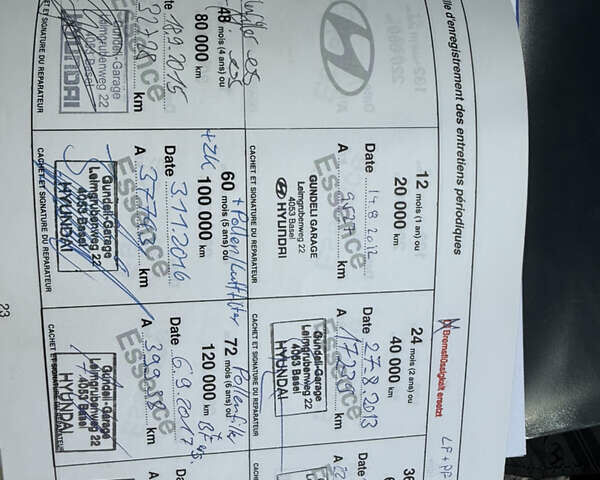 lle d'enregistrement des entretiens périodiques
12 mois (1 an) ou
20 000 km
Date 14.8.2012
A 9621 km
Essence
GUNDELI GARAGE
Leimgrubenweg 22
4053 Basel
HYUNDAI
CACHET ET SIGNATURE DU REPARATEUR
Bremsflüssigkeit ersetzt
24 mois (2 ans) ou
40 000 km
Date 27.8.2013
A 17229 km
Essence
Gundeli-Garage
Leimgrubenweg 22
4053 Basel
HYUNDAI
CACHET ET SIGNATURE DU REPARATEUR
LF + PF
36
48 mois (4 ans) ou
80 000 km
Date 18.9.2015
km
Essence
Gundeli-Garage
Leimgrubenweg 22
4053 Basel
HYUNDAI
CACHET ET SIGNATURE DU REPARATEUR
+ Pollen Luftfilter
60 mois (5 ans) ou
+ZK 100 000 km
Date 3.11.2016
A 37793 km
Essence
Gundeli-Garage
Leimgrubenweg 22
4053 Basel
HYUNDAI
CACHET ET SIGNATURE DU REPARATEUR
Pollenfilter
72 mois (6 ans) ou
120 000 km
Date 6.9.2017
A 39988 km
Essence
Gundeli-Garage
Leimgrubenweg 22
4053 Basel
HYUNDAI
CACHET ET SIGNATURE DU REPARATEUR
23